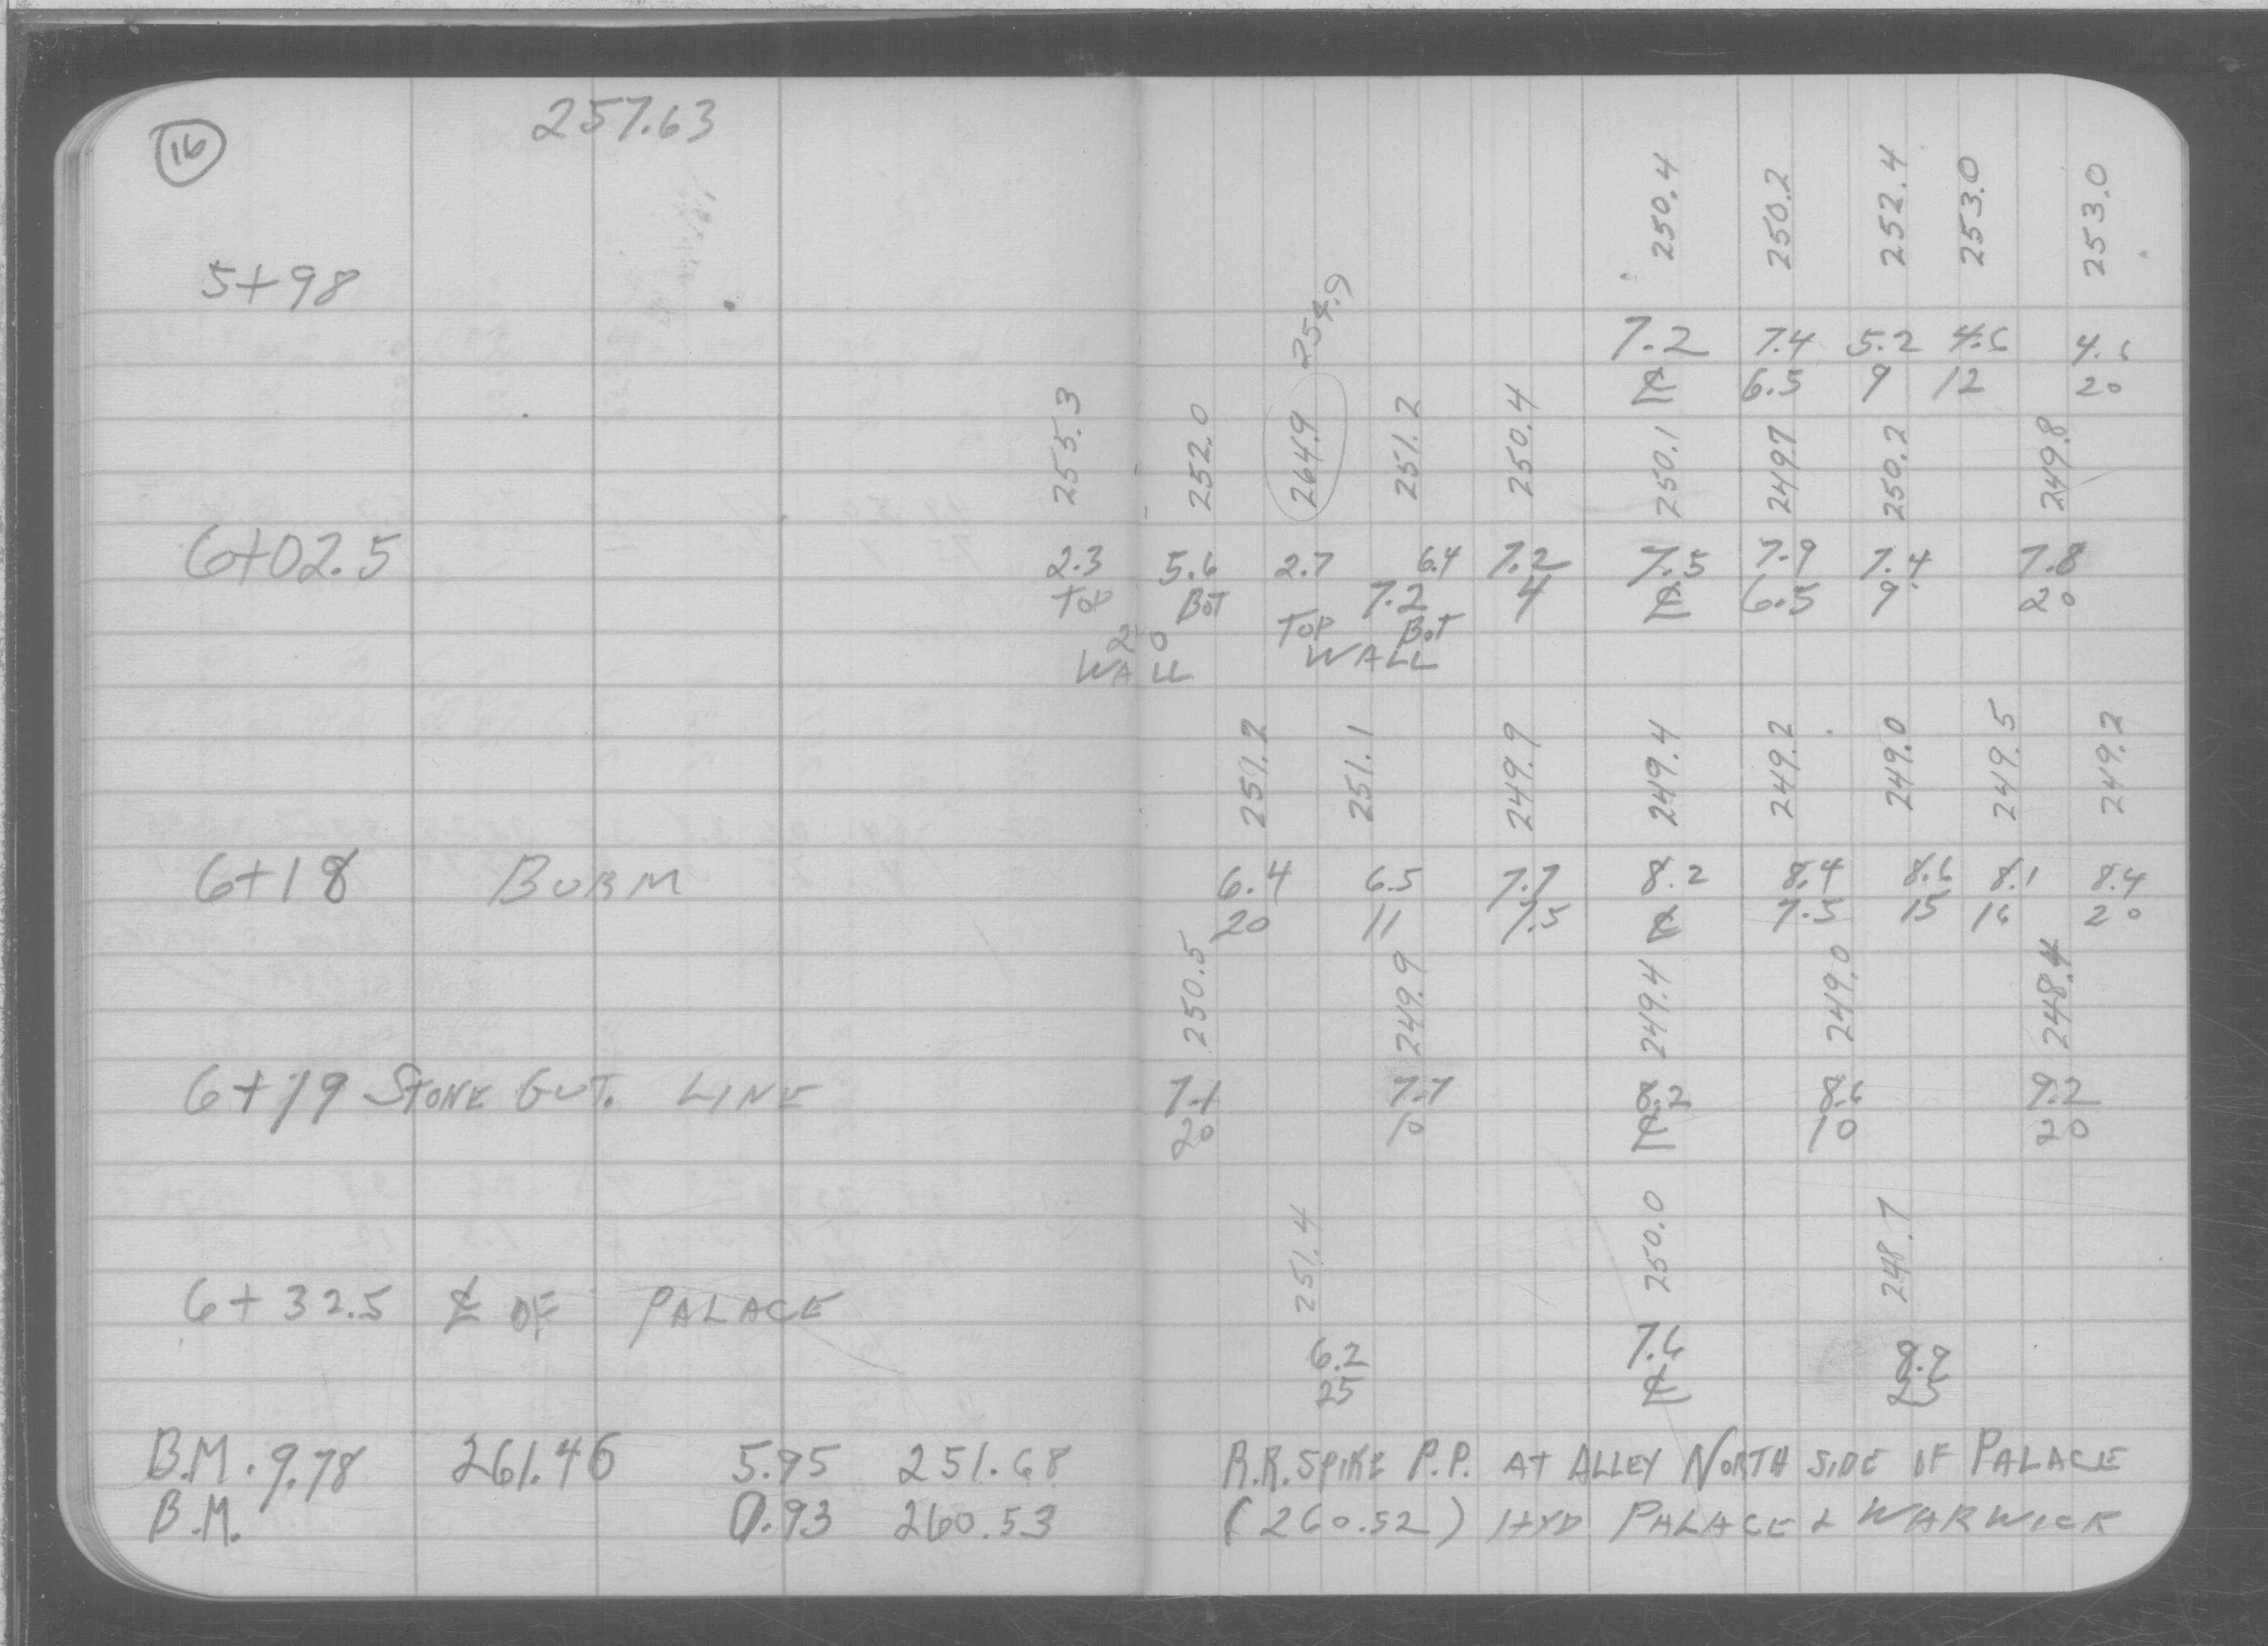 16 257.63
250.4 250.2 252.4 253.0 253.0
5+98
7.2 7.4 5.2 4.6 4.6
℄ 6.5 9 12 20
254.9
255.3 252.0 264.9 251.2 250.4 250.1 249.7 250.2 249.8
6+02.5 2.3 5.6 2.7 6.4 7.2 7.5 7.9 7.4 7.8
TOP BOT 7.2 4 ℄ 6.5 9 20
20 TOP BOT
WALL WALL
251.2 251.1 249.9 249.4 249.2 249.0 249.5 249.2
6+18 BURM 6.4 6.5 7.7 8.2 8.4 8.6 8.1 8.4
20 11 7.5 ℄ 7.5 15 16 20
250.5 249.9 249.4 249.0 248.4
6+19 STONE GUT. LINE 7.1 7.7 8.2 8.6 9.2
20 10 ℄ 10 20
251.4 250.0 248.7
6+32.5 ℄ OF PALACE
6.2 7.6 8.9
25 ℄ 25
B.M. 9.78 261.46 5.95 251.68 R.R. SPIKE P.P. AT ALLEY NORTH SIDE OF PALACE
B.M. 0.93 260.53 (260.52) HYD PALACE & WARWICK